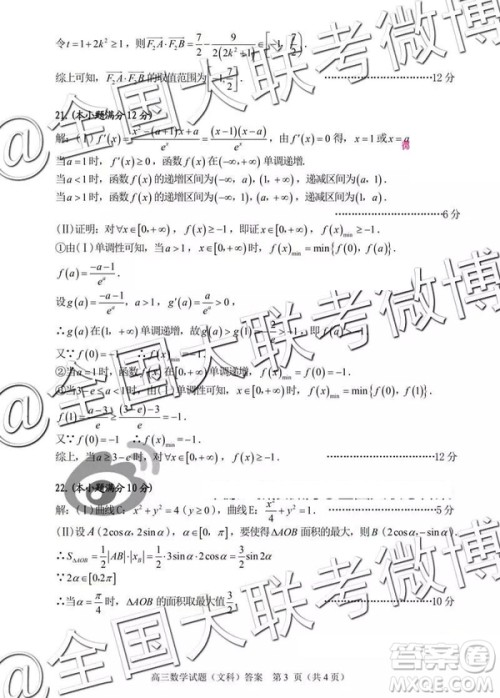 令t=1+2k²≥1，则F₂A·F₂B=7/2-9/(2(2k²+1))∈[-1,7/2).
综上可知，F₂A·F₂B的取值范围为[-1,7/2]. ……12分
21.(本小题满分12分)
解：(Ⅰ)f′(x)=(x²-(a+1)x+a)/eˣ=(x-1)(x-a)/eˣ，由f′(x)=0得，x=1或x=a
当a=1时，f′(x)≥0，函数f(x)在(-∞,+∞)单调递增.
当a<1时，函数f(x)的递增区间为(-∞,a)，(1,+∞)，递减区间为(a,1).
当a>1时，函数f(x)的递增区间为(-∞,1)，(a,+∞)，递减区间为(1,a).
……6分
(Ⅱ)证明：对∀x∈[0,+∞)，f(x)≥-1，即证x∈[0,+∞)，f(x)min≥-1.
①由(Ⅰ)单调性可知，当a>1，x∈[0,+∞)时，f(x)min=min{f(0),f(a)}
f(a)=(-a-1)/eᵃ.
设g(a)=(-a-1)/eᵃ，a>1，g′(a)=a/eᵃ>0
∴g(a)在(1,+∞)单调递增，故g(a)>g(1)=-2/e>-1，即f(a)>-1.
又∵f(0)=-1 ∴f(x)min=-1
②当a=1时，函数f(x)在[0,+∞)单调递增，f(x)min=f(0)=-1
③当3-e≤a<1时，由(Ⅰ)单调性可知，x∈[0,+∞)时，f(x)min=min{f(0),f(1)}.
f(1)=(a-3)/e≥((3-e)-3)/e=-1.
又∵f(0)=-1 ∴f(x)min=-1
综上，当a≥3-e时，对∀x∈[0,+∞)，f(x)≥-1. ……12分
22.(本小题满分10分)
解：(Ⅰ)曲线C：x²+y²=4(y≥0)，曲线E：x²/4+y²=1. ……5分
(Ⅱ)设A(2cosα,2sinα)，α∈[0,π]，要使得△AOB面积的最大，则B(2cosα,-sinα).
∴S△AOB=1/2|AB|·|x_B|=1/2·3sinα·2cosα=3/2sin2α
∵2α∈[0,2π]
∴当α=π/4时，△AOB的面积取最大值3/2.
高三数学试题（文科）答案 第3页（共4页）
@全国大联考微博
@全国大联考微博
@全国大联考微博
作业帮